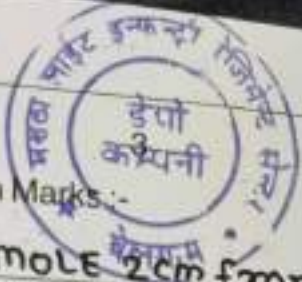 मराठा लाईट इन्फन्ट्री रेजिमेंट सेन्टर
डेपो
3
कम्पनी
बेलगाम
Marks :-
MOLE 2cm from